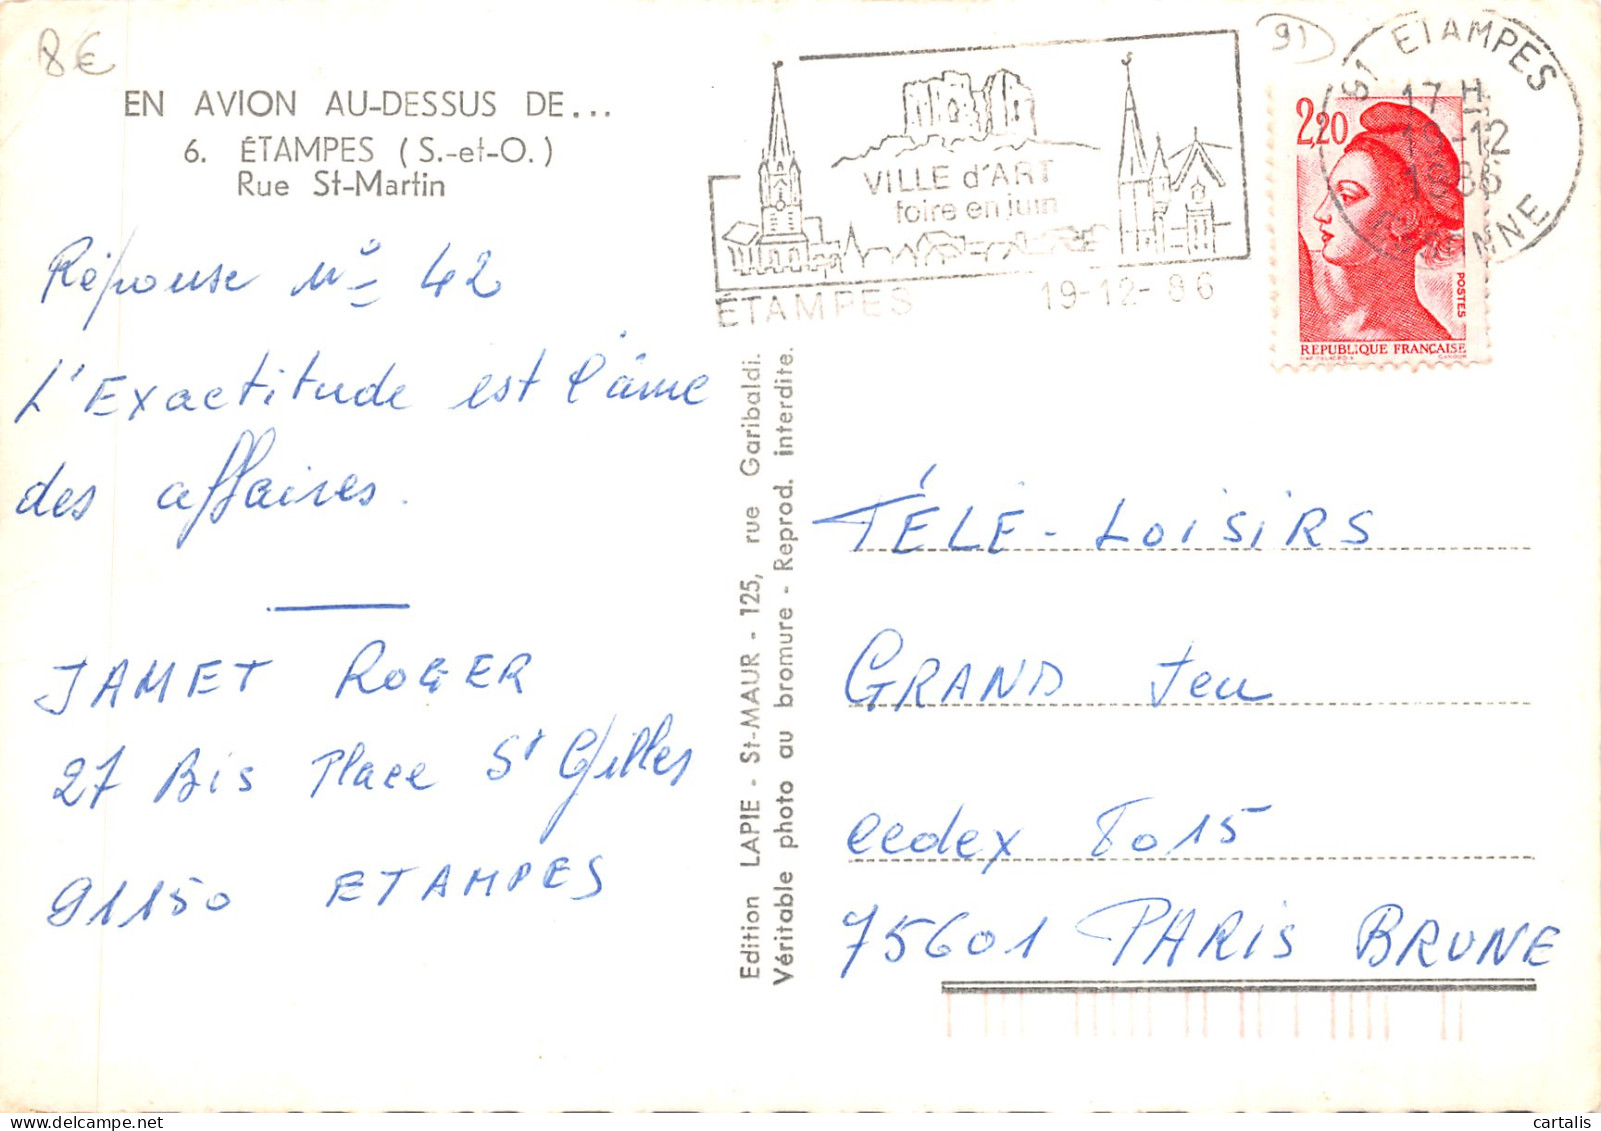 8€
EN AVION AU-DESSUS DE...
6. ÉTAMPES (S.-et-O.)
Rue St-Martin
Réponse N° 42
L'Exactitude est l'âme
des affaires.
JAMET ROGER
27 Bis Place St Gilles
91150 ETAMPES
Edition LAPIE - St-MAUR - 125, rue Garibaldi.
Véritable photo au bromure - Reprod. interdite.
VILLE d'ART
foire en juin
ÉTAMPES 19-12-86
91
91 ETAMPES
17 H
19-12
1986
ESSONNE
2,20
POSTES
REPUBLIQUE FRANÇAISE
TÉLÉ-LOISIRS
GRAND Jeu
cedex 8015
75601 PARIS BRUNE
cartalis
delcampe.net